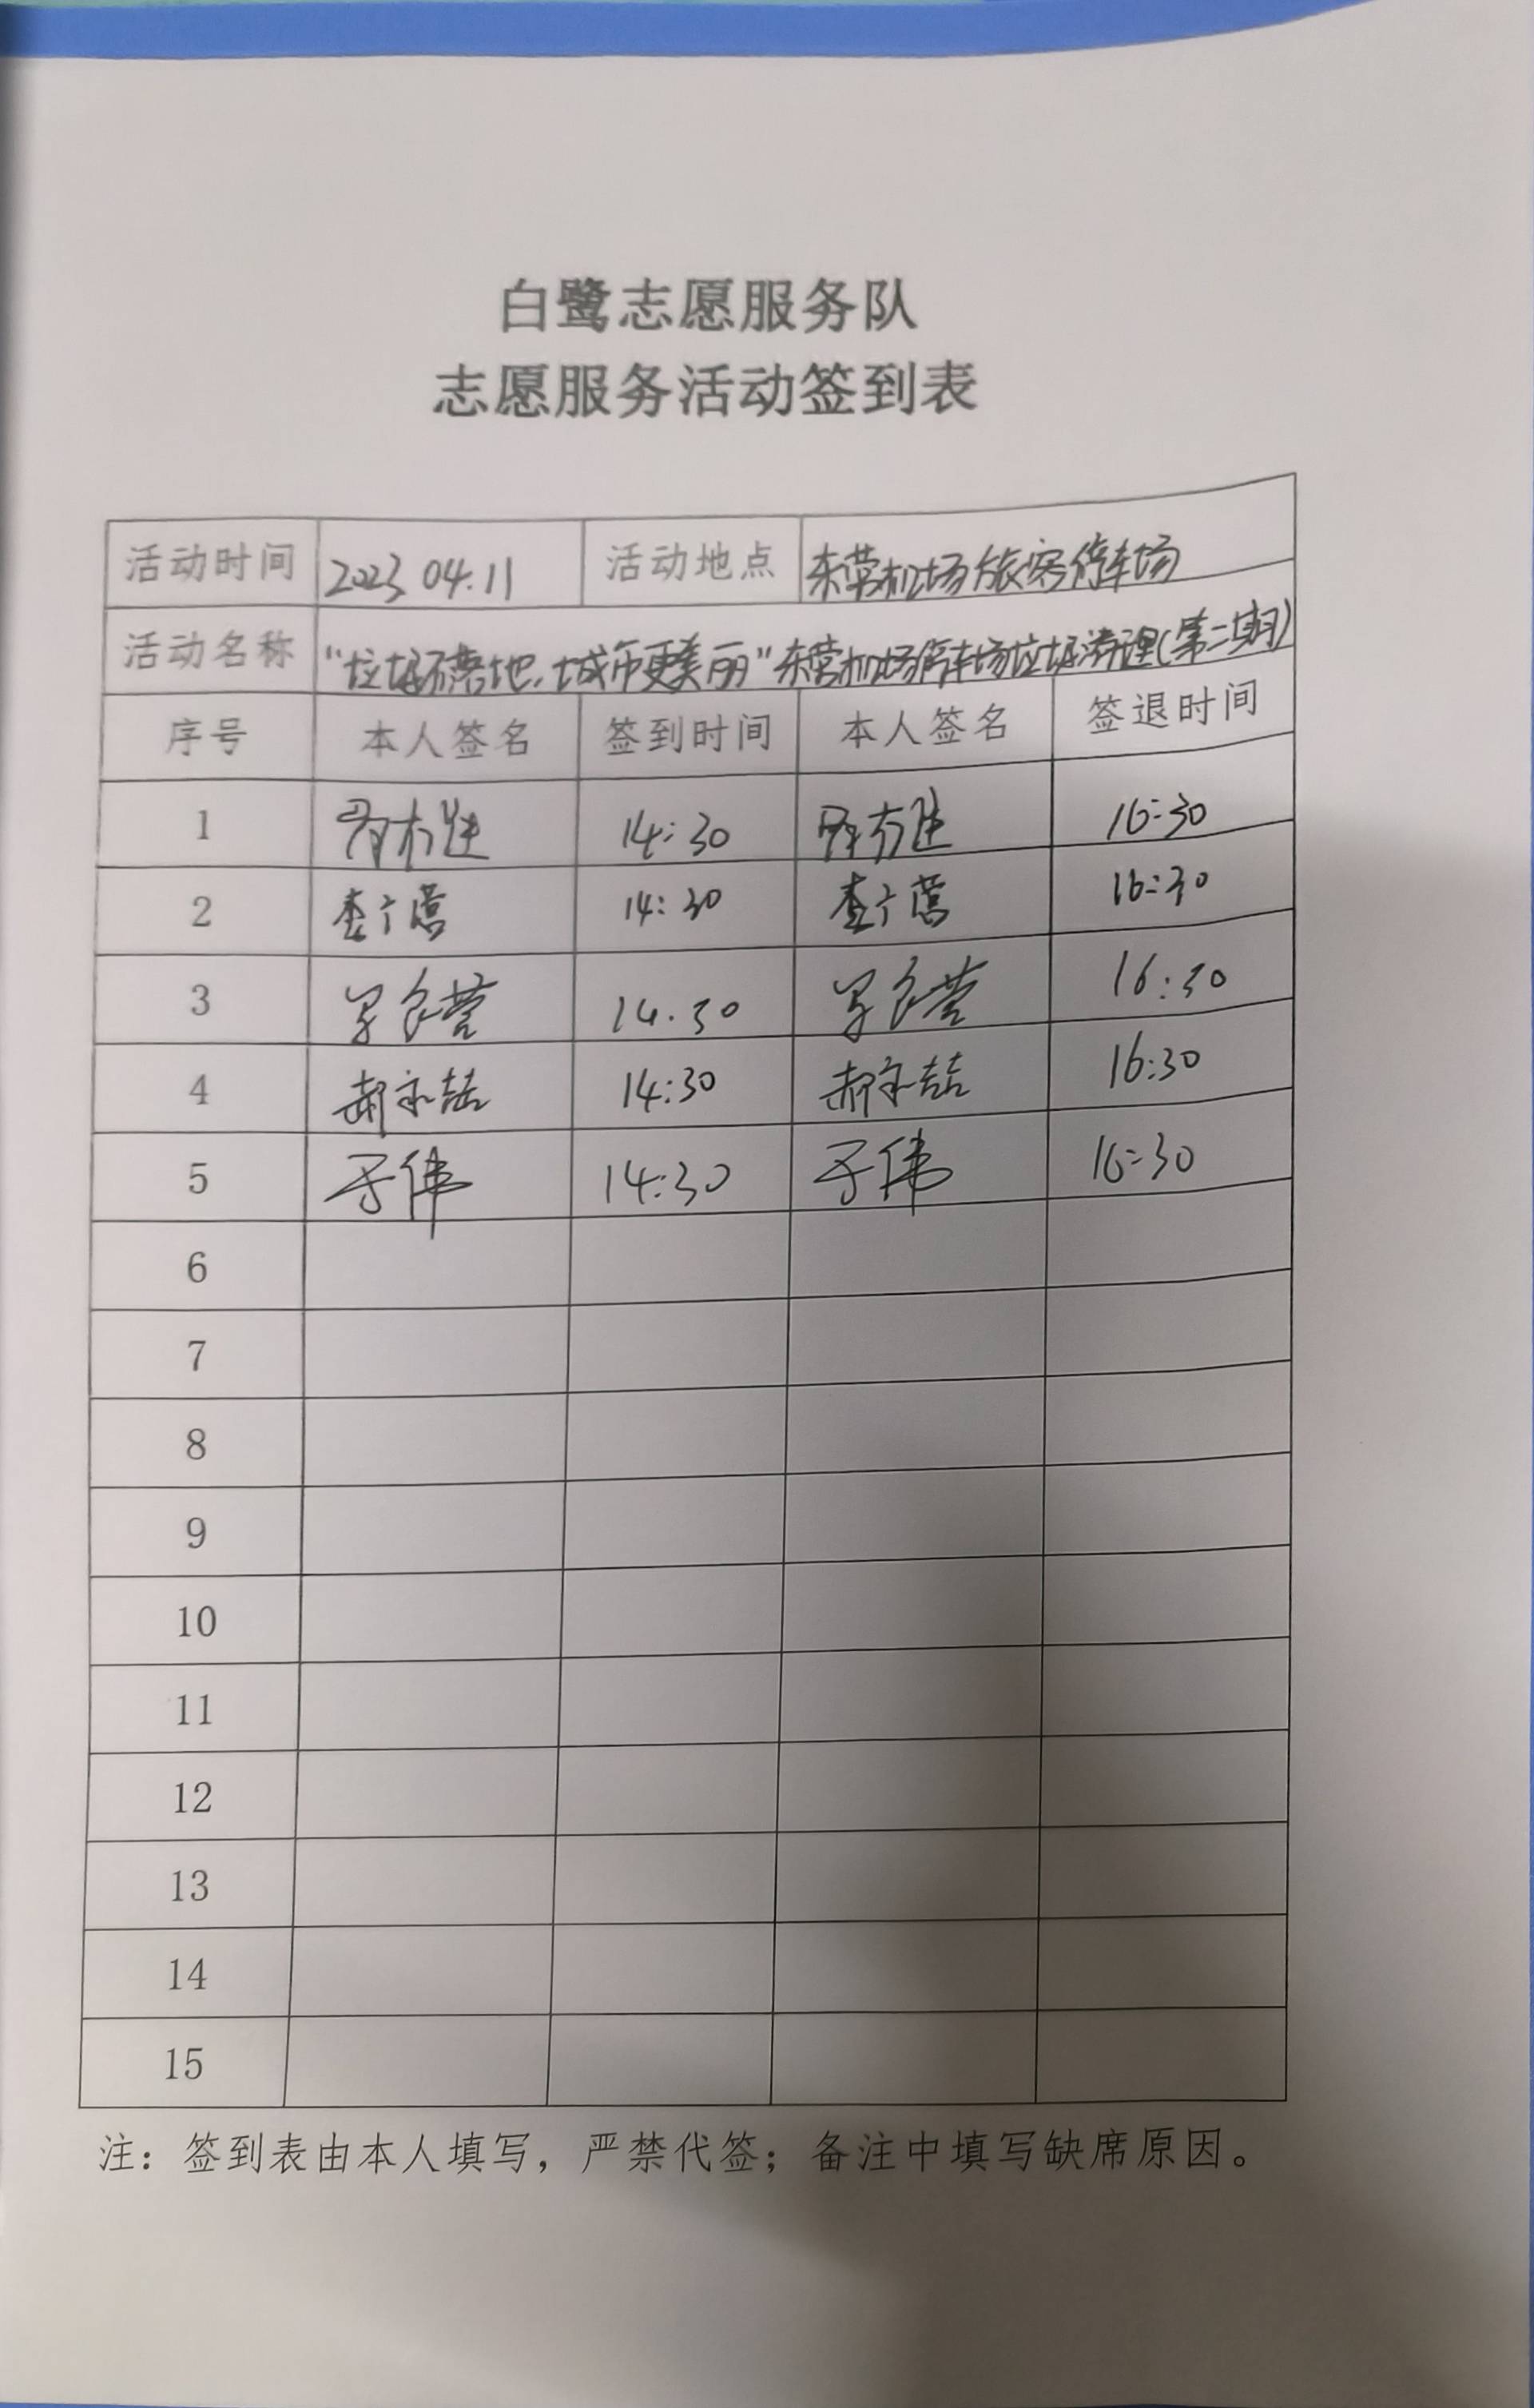 白鹭志愿服务队
志愿服务活动签到表
活动时间 2023 04.11 活动地点 东营机场旅客停车场
活动名称 "垃圾不落地,城市更美丽"东营机场停车场垃圾清理(第二期)
序号 本人签名 签到时间 本人签名 签退时间
1 14:30 16:30
2 14:30 16:30
3 14.30 16:30
4 14:30 16:30
5 于伟 14:30 于伟 16:30
6
7
8
9
10
11
12
13
14
15
注：签到表由本人填写，严禁代签；备注中填写缺席原因。